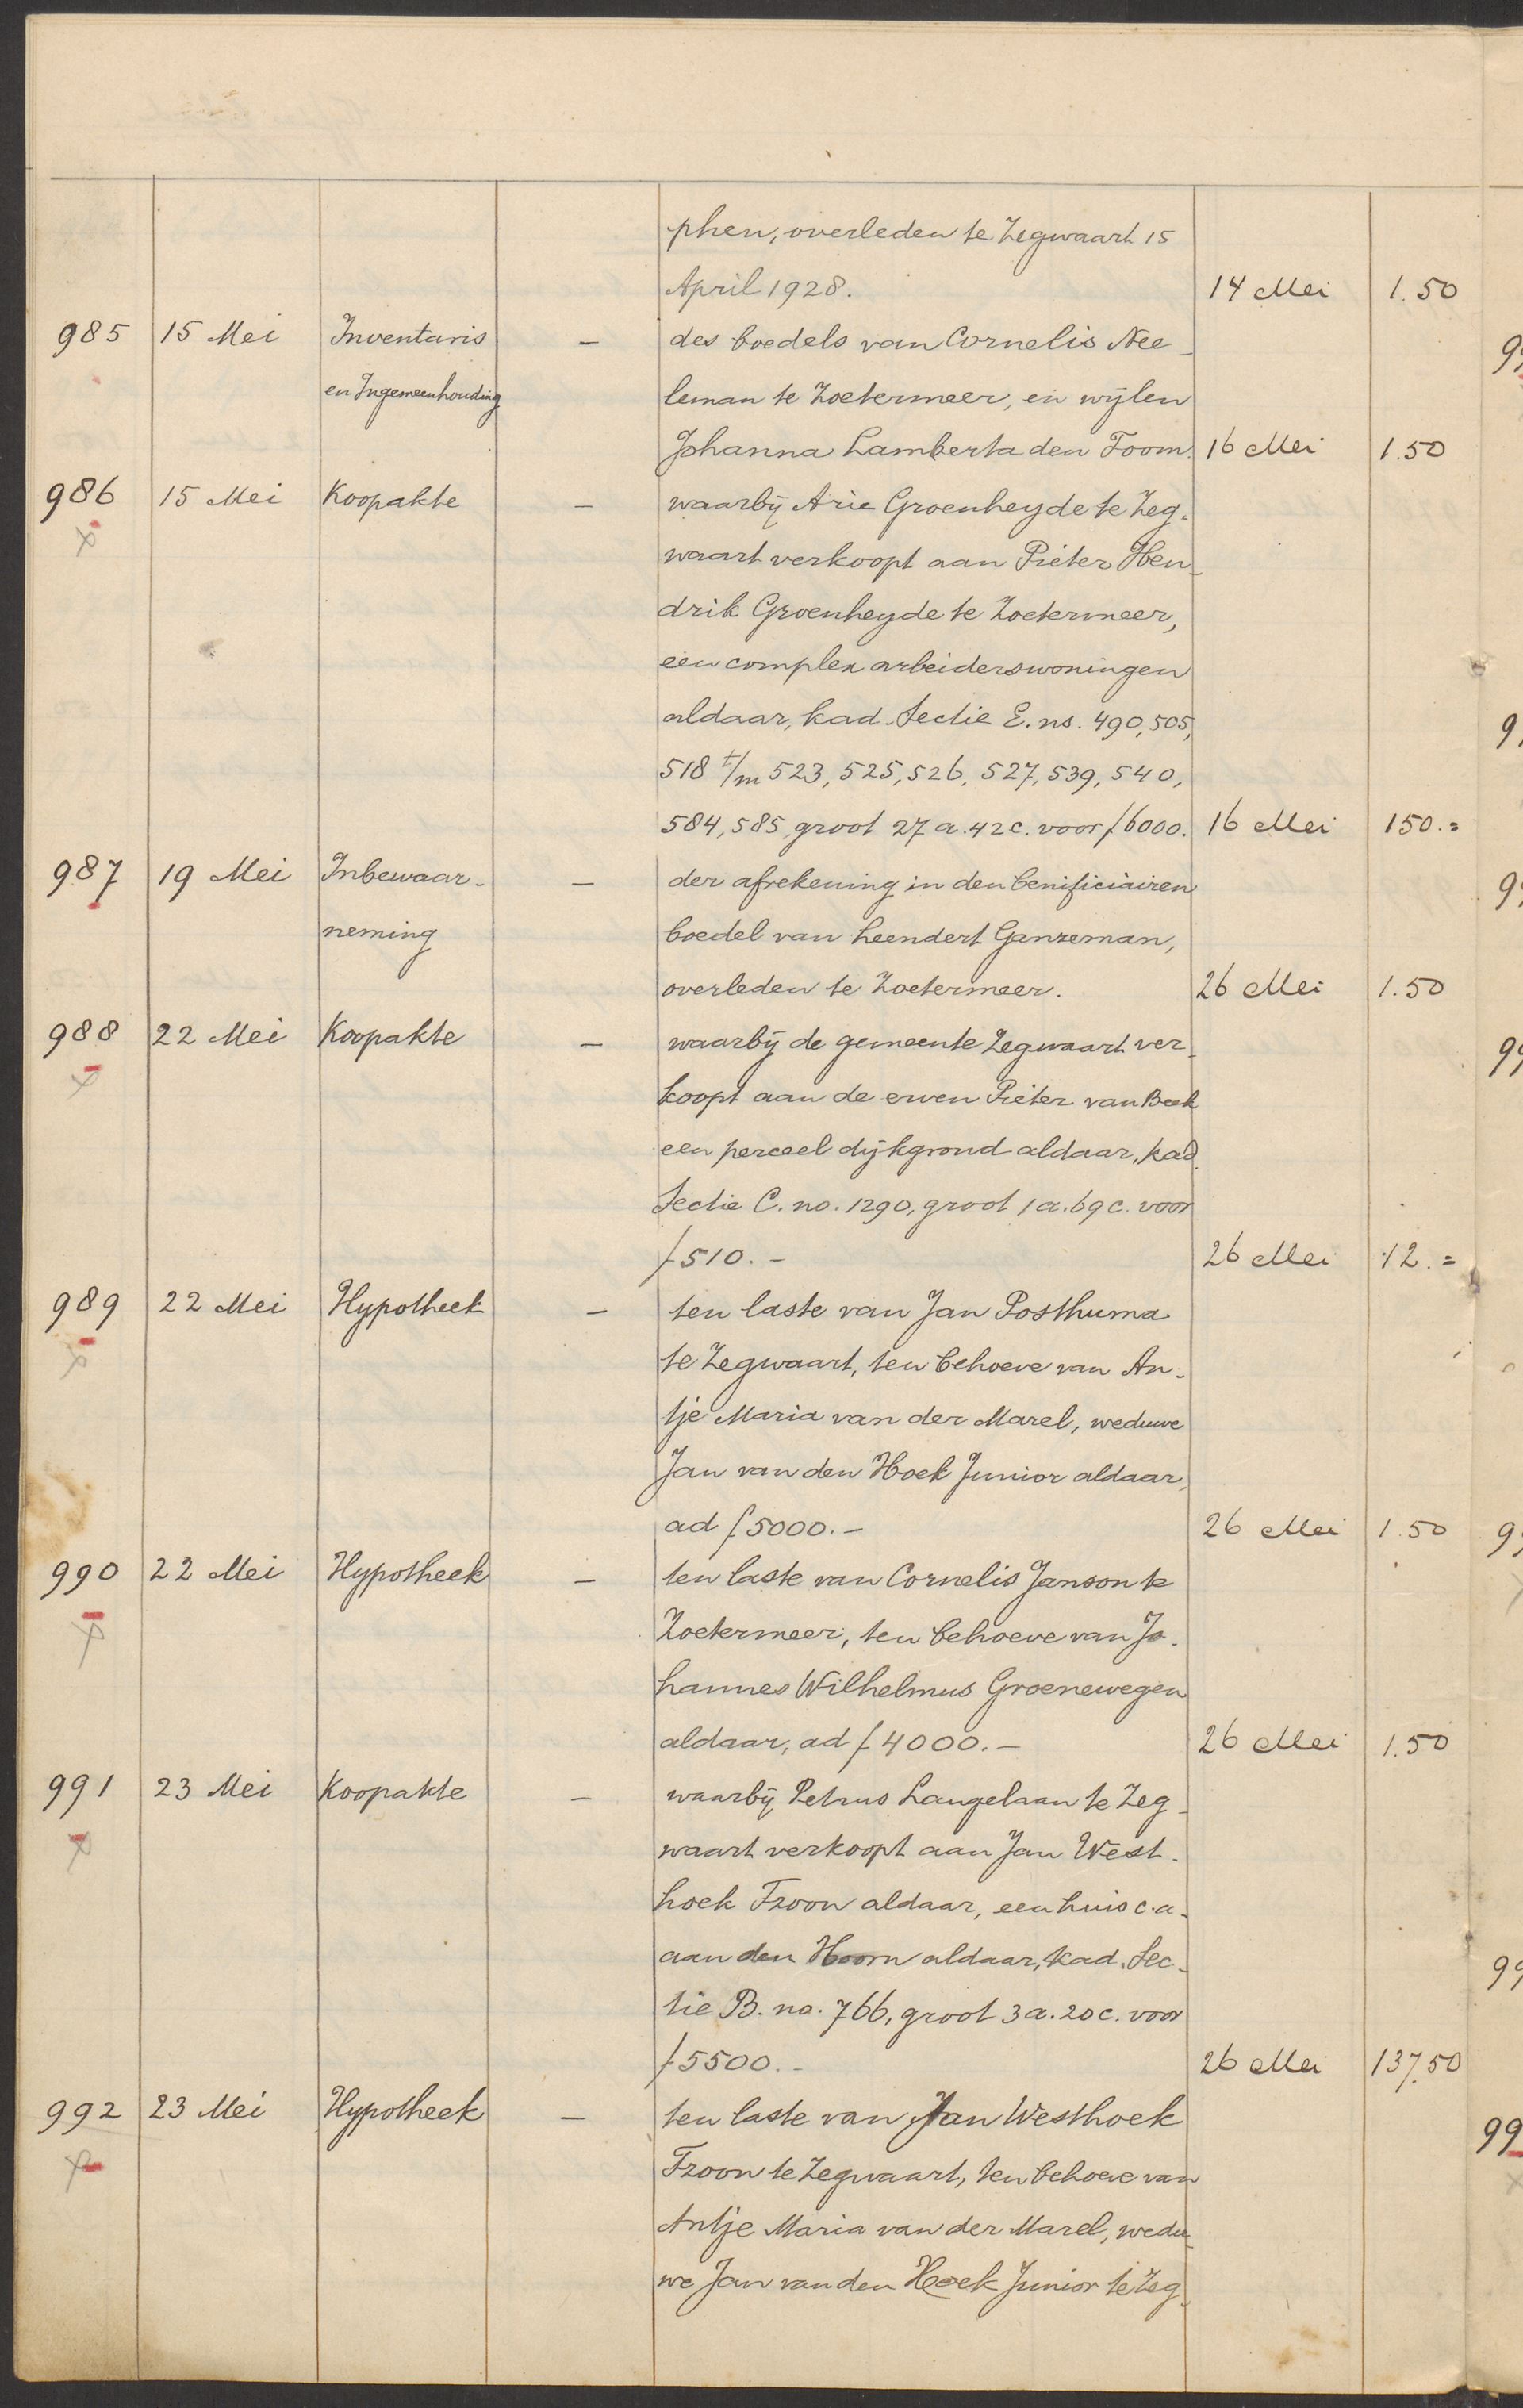 phen, overleden te Zegwaart 15
April 1928. 14 Mei 1.50
985 15 Mei Inventaris — des boedels van Cornelis Nee-
en Ingemeenhouding leman te Zoetermeer, en wijlen
Johanna Lamberta den Toom. 16 Mei 1.50
986 15 Mei Koopakte — waarbij Arie Groenheyde te Zeg-
waart verkoopt aan Pieter Hen-
drik Groenheyde te Zoetermeer,
een complex arbeiderswoningen
aldaar, kad. Sectie E. ns. 490, 505,
518 t/m 523, 525, 526, 527, 539, 540,
584, 585, groot 27 a. 42 c. voor f 6000. 16 Mei 150.=
987 19 Mei Inbewaar- — der afrekening in den benificiairen
neming boedel van Leendert Ganzeman,
overleden te Zoetermeer. 26 Mei 1.50
988 22 Mei Koopakte — waarbij de gemeente Zegwaart ver-
koopt aan de erven Pieter van Beek
een perceel dijkgrond aldaar, kad.
Sectie C. no. 1290, groot 1 a. 69 c. voor
f 510.- 26 Mei 12.=
989 22 Mei Hypotheek — ten laste van Jan Posthuma
te Zegwaart, ten behoeve van An-
tje Maria van der Marel, weduwe
Jan van den Hoek Junior aldaar,
ad f 5000.- 26 Mei 1.50
990 22 Mei Hypotheek — ten laste van Cornelis Janson te
Zoetermeer, ten behoeve van Jo-
hannes Wilhelmus Groenewegen
aldaar, ad f 4000.- 26 Mei 1.50
991 23 Mei Koopakte — waarbij Petrus Langelaan te Zeg-
waart verkoopt aan Jan West-
hoek Fzoon aldaar, een huis c.a.
aan den Hoorn aldaar, kad. Sec-
tie B. no. 766, groot 3 a. 20 c. voor
f 5500.- 26 Mei 137.50
992 23 Mei Hypotheek — ten laste van Jan Westhoek
Fzoon te Zegwaart, ten behoeve van
Antje Maria van der Marel, wedu-
we Jan van den Hoek Junior te Zeg-